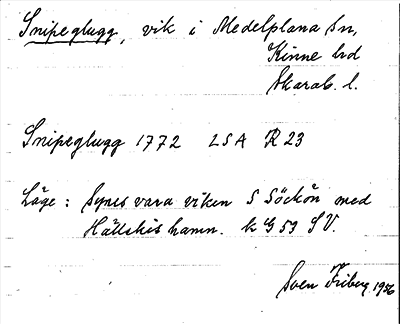 Snipeglugg, vik i Medelplana Sn,
Kinne hd
Skarab. l.
Snipeglugg 1772 LSA R 23
Läge: Synes vara viken S Söckön med
Hällekis hamn. k G 59 SV.
Sven Friberg 1956